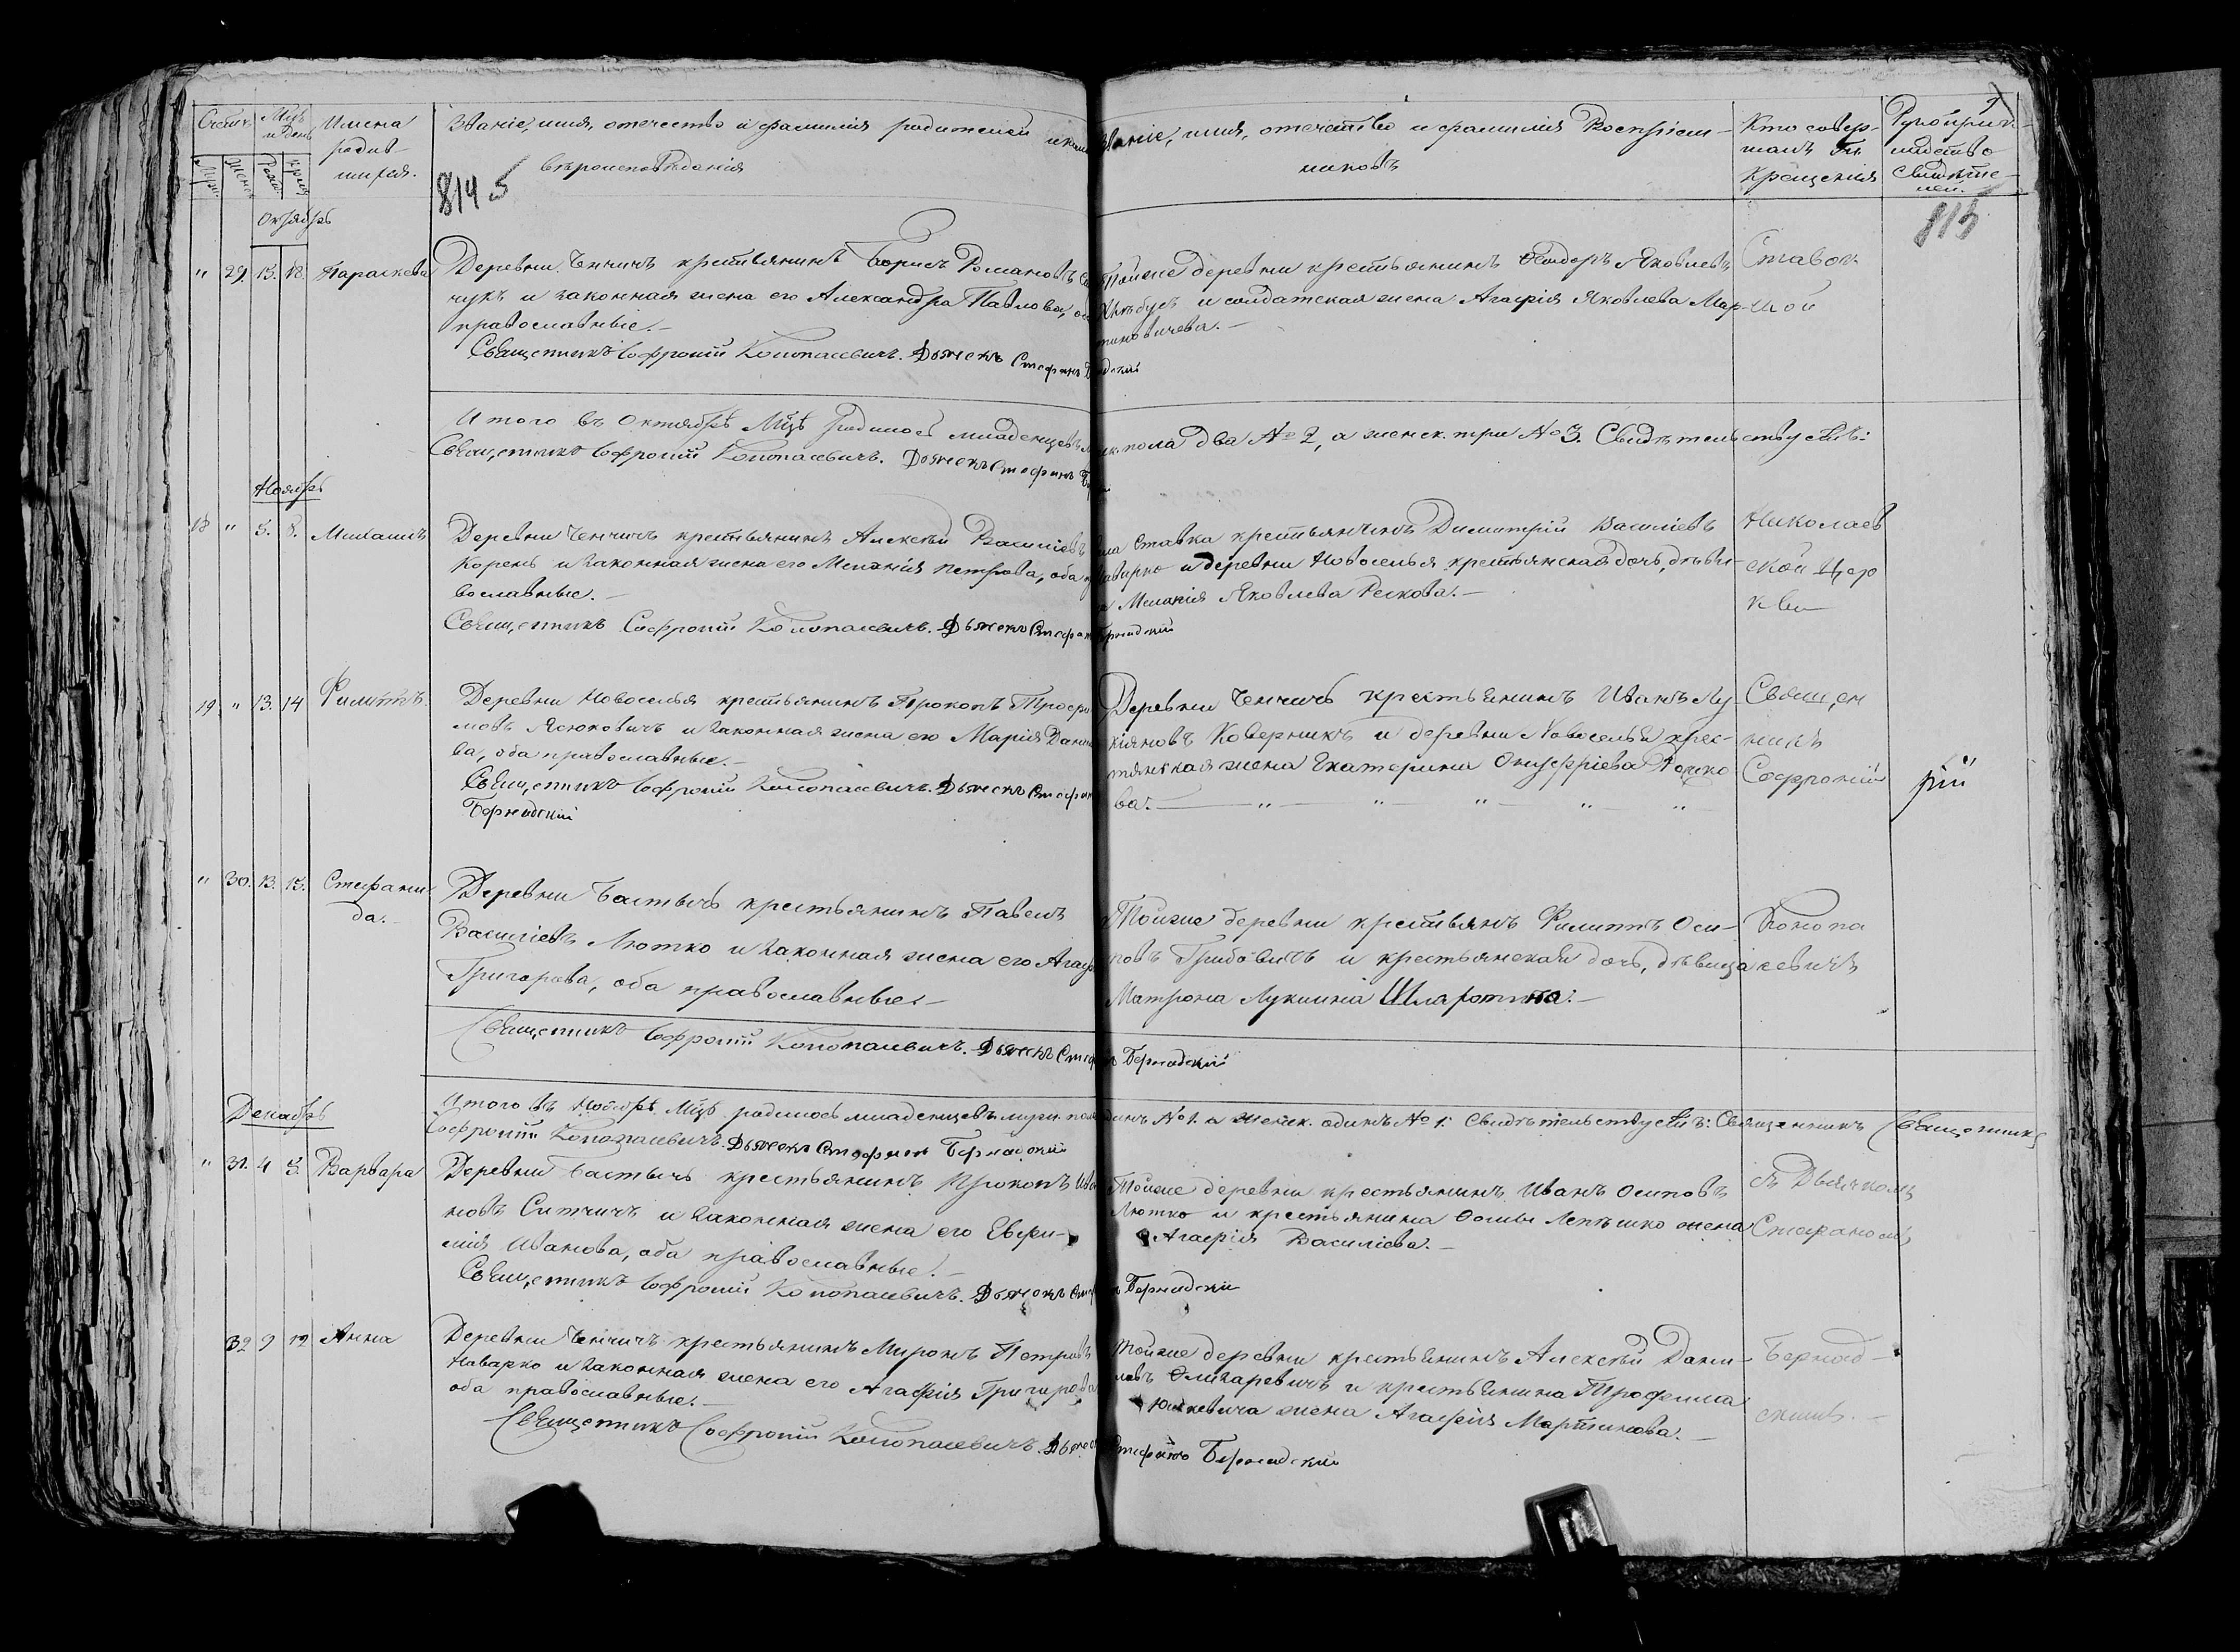 Счетъ
Мцъ и день
Имена родившихся.
Званіе, имя, отечество и фамилія родителей и какого
вѣроисповѣданія
Званіе, имя, отечество и фамилія Воспріем-
никовъ
Кто совер-
шалъ Тн.
Крещенія
Рукоприк-
ладство
Свидѣте-
лей.
814
815
Октябрь
" 29. 15. 18. Параскева
Деревни Ченчичъ крестьянинъ Борисъ Романовъ
чукъ и законная жена его Александра Павлова,
православные.
Священникъ Софроній Конопасевичъ. Дьячекъ Стефанъ
Тойже деревни крестьянинъ Ѳеодоръ Яковлевъ
и солдатская жена Агафія Яковлева Мар-
тиновичева.
Ставок-
ской
Итого въ Октябрѣ Мцѣ родилось младенцевъ пола два № 2, а женск. три № 3. Свидѣтельствуемъ:
Священникъ Софроній Конопасевичъ. Дьячекъ Стефанъ
Ноябрь
18 " 5. 8. Михаилъ
Деревни Ченчичъ крестьянинъ Алексѣй Василіевъ
Корень и законная жена его Меланія Петрова, оба
вославные.
Священникъ Софроній Конопасевичъ. Дьячекъ Стефанъ Бернадскій
Ставка крестьянинъ Димитрій Василіевъ
и деревни Новоселья крестьянская дочь, дѣви-
Меланія Яковлева
Николаев
ской Цер
кви
19. " 13. 14 Филиппъ.
Деревни Новоселья крестьянинъ Прокопъ Трофи
мовъ Ясюковичъ и законная жена его Марія Данило
ва, оба православные.
Священникъ Софроній Конопасевичъ. Дьячекъ Стефанъ
Бернадскій
Деревни Ченчичъ крестьянинъ Иванъ Лу
кіяновъ Коверникъ и деревни Новоселья крес-
тянская жена Екатерина Онуфріева
ва.
Священ
никъ
Софроній
рій
" 30. 13. 15. Стефани
да.
Деревни Бастычъ крестьянинъ Павелъ
Василіевъ Лютко и законная жена его Агаф
Григорова, оба православные
Священникъ Софроній Конопасевичъ. Дьячекъ Стефанъ Бернадскій
Тойже деревни крестьянъ Филиппъ Оси-
повъ Грибовичъ и крестьянская дочь, дѣвица
Матрона Лукина
Конопа
севичъ
Итого въ Ноябрѣ Мцѣ родилось младенцевъ муж. пола одинъ № 1. а женск. одинъ № 1. Свидѣтельствуемъ: Священникъ
Софроній Конопасевичъ. Дьячекъ Стефанъ Бернадскій
Священникъ
Декабрь
" 31. 4 5. Варвара
Деревни Бастычъ крестьянинъ Прокопъ Ива
новъ Ситчичъ и законная жена его Евфи-
мія Иванова, оба православные.
Священникъ Софроній Конопасевичъ. Дьячекъ Стефанъ Бернадскій
Тойже деревни крестьянинъ Иванъ Осиповъ
Лютко и крестьянина Ѳомы Лепешко жена
Агафія Василіева.
съ Дьячкомъ
Стефаномъ
32 9 12 Анна
Деревни Ченчичъ крестьянинъ Миронъ Петровъ
Наварко и законная жена его Агафія Григорова
оба православные.
Священникъ Софроній Конопасевичъ. Дьячекъ Стефанъ Бернадскій
Тойже деревни крестьянинъ Алексѣй Дани-
ловъ Олихаревичъ и крестьянина Трофима
Юшкевича жена Агафія Мартинова.
Бернад-
скимъ.